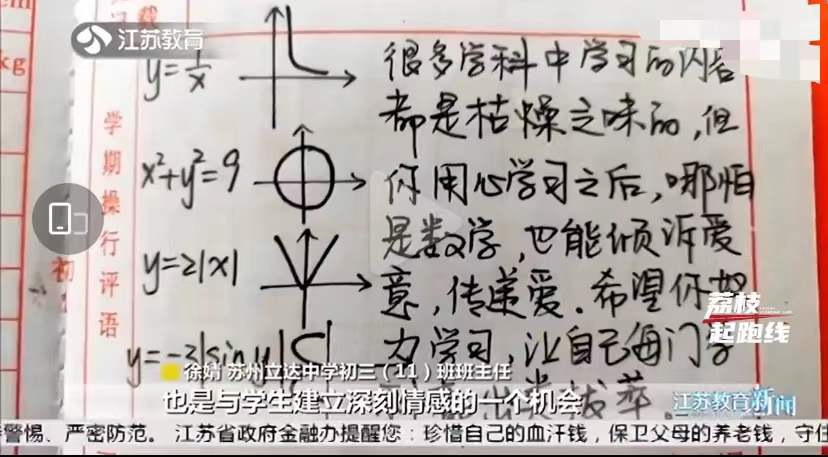 江苏教育
kg
学期操行评语
初
y=1/x
x²+y²=9
y=2|x|
y=-3|sin y|
很多学科中学习的内容
都是枯燥乏味的,但
你用心学习之后,哪怕
是数学,也能倾诉爱
意,传递爱.希望你努
力学习,让自己每门学
出类拔萃。
荔枝
起跑线
徐婧 苏州立达中学初三（11）班班主任
也是与学生建立深刻情感的一个机会
江苏教育新闻
警惕、严密防范。 江苏省政府金融办提醒您：珍惜自己的血汗钱，保卫父母的养老钱，守住